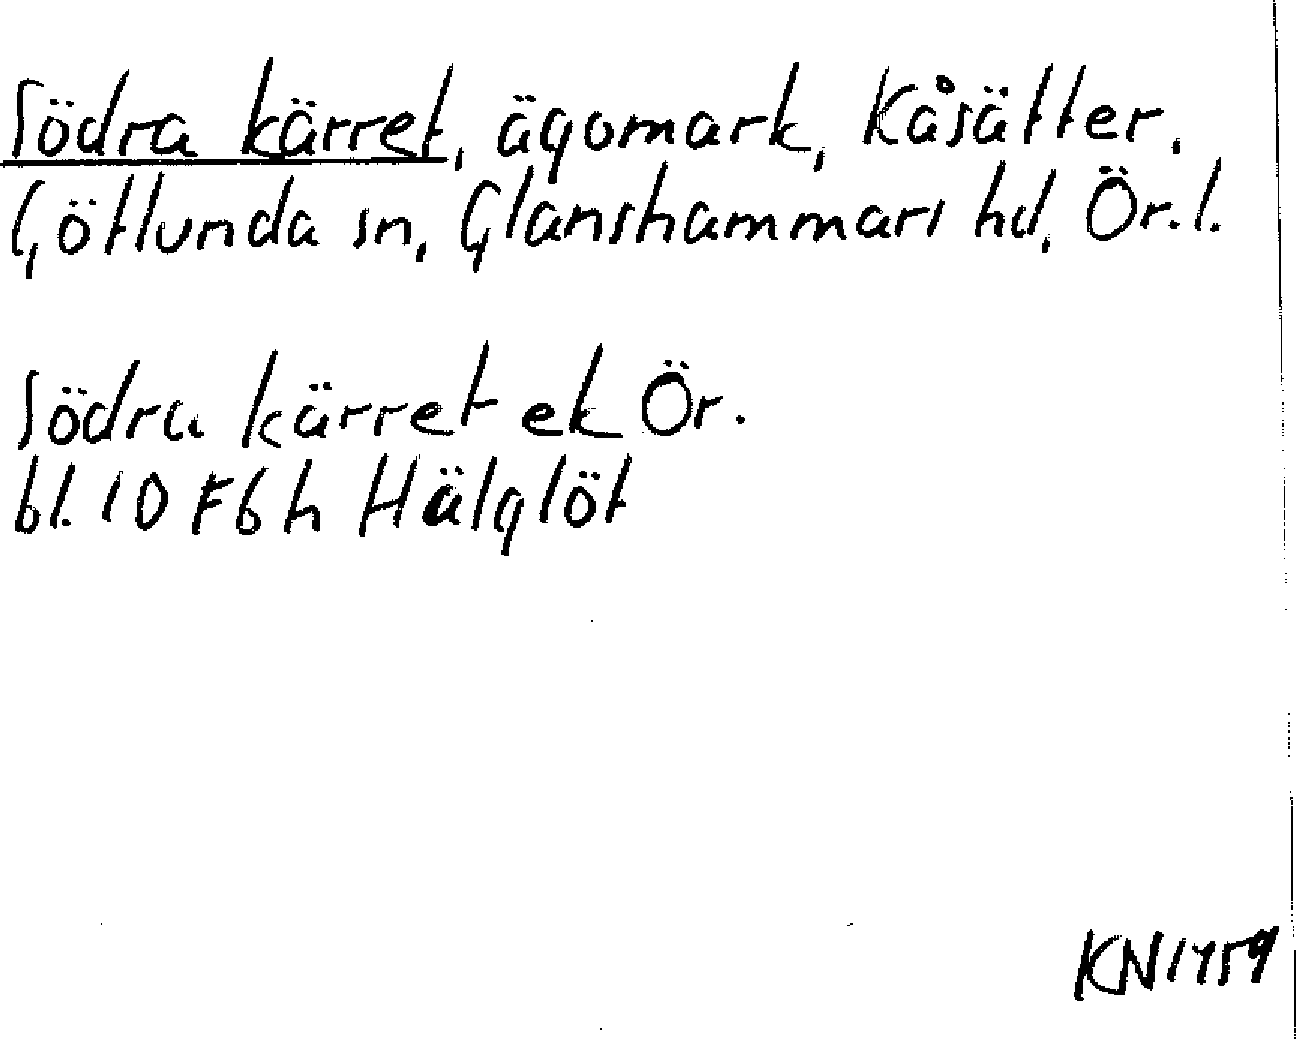 Södra kärret, ägomark, Kåsätter,
Götlunda sn, Glanshammars hd, Ör.l.
Södra kärret ek Ör.
bl. 10 F6h Hälglöt